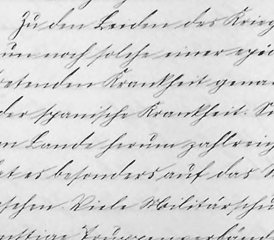 Zu den Leiden des Krieg
nun noch solche einer epid
tretenden Krankheit genan
der spanische Krankheit. Si
im Lande herum zahlreich
at es besonders auf das M
sehen. Viele Militärschu